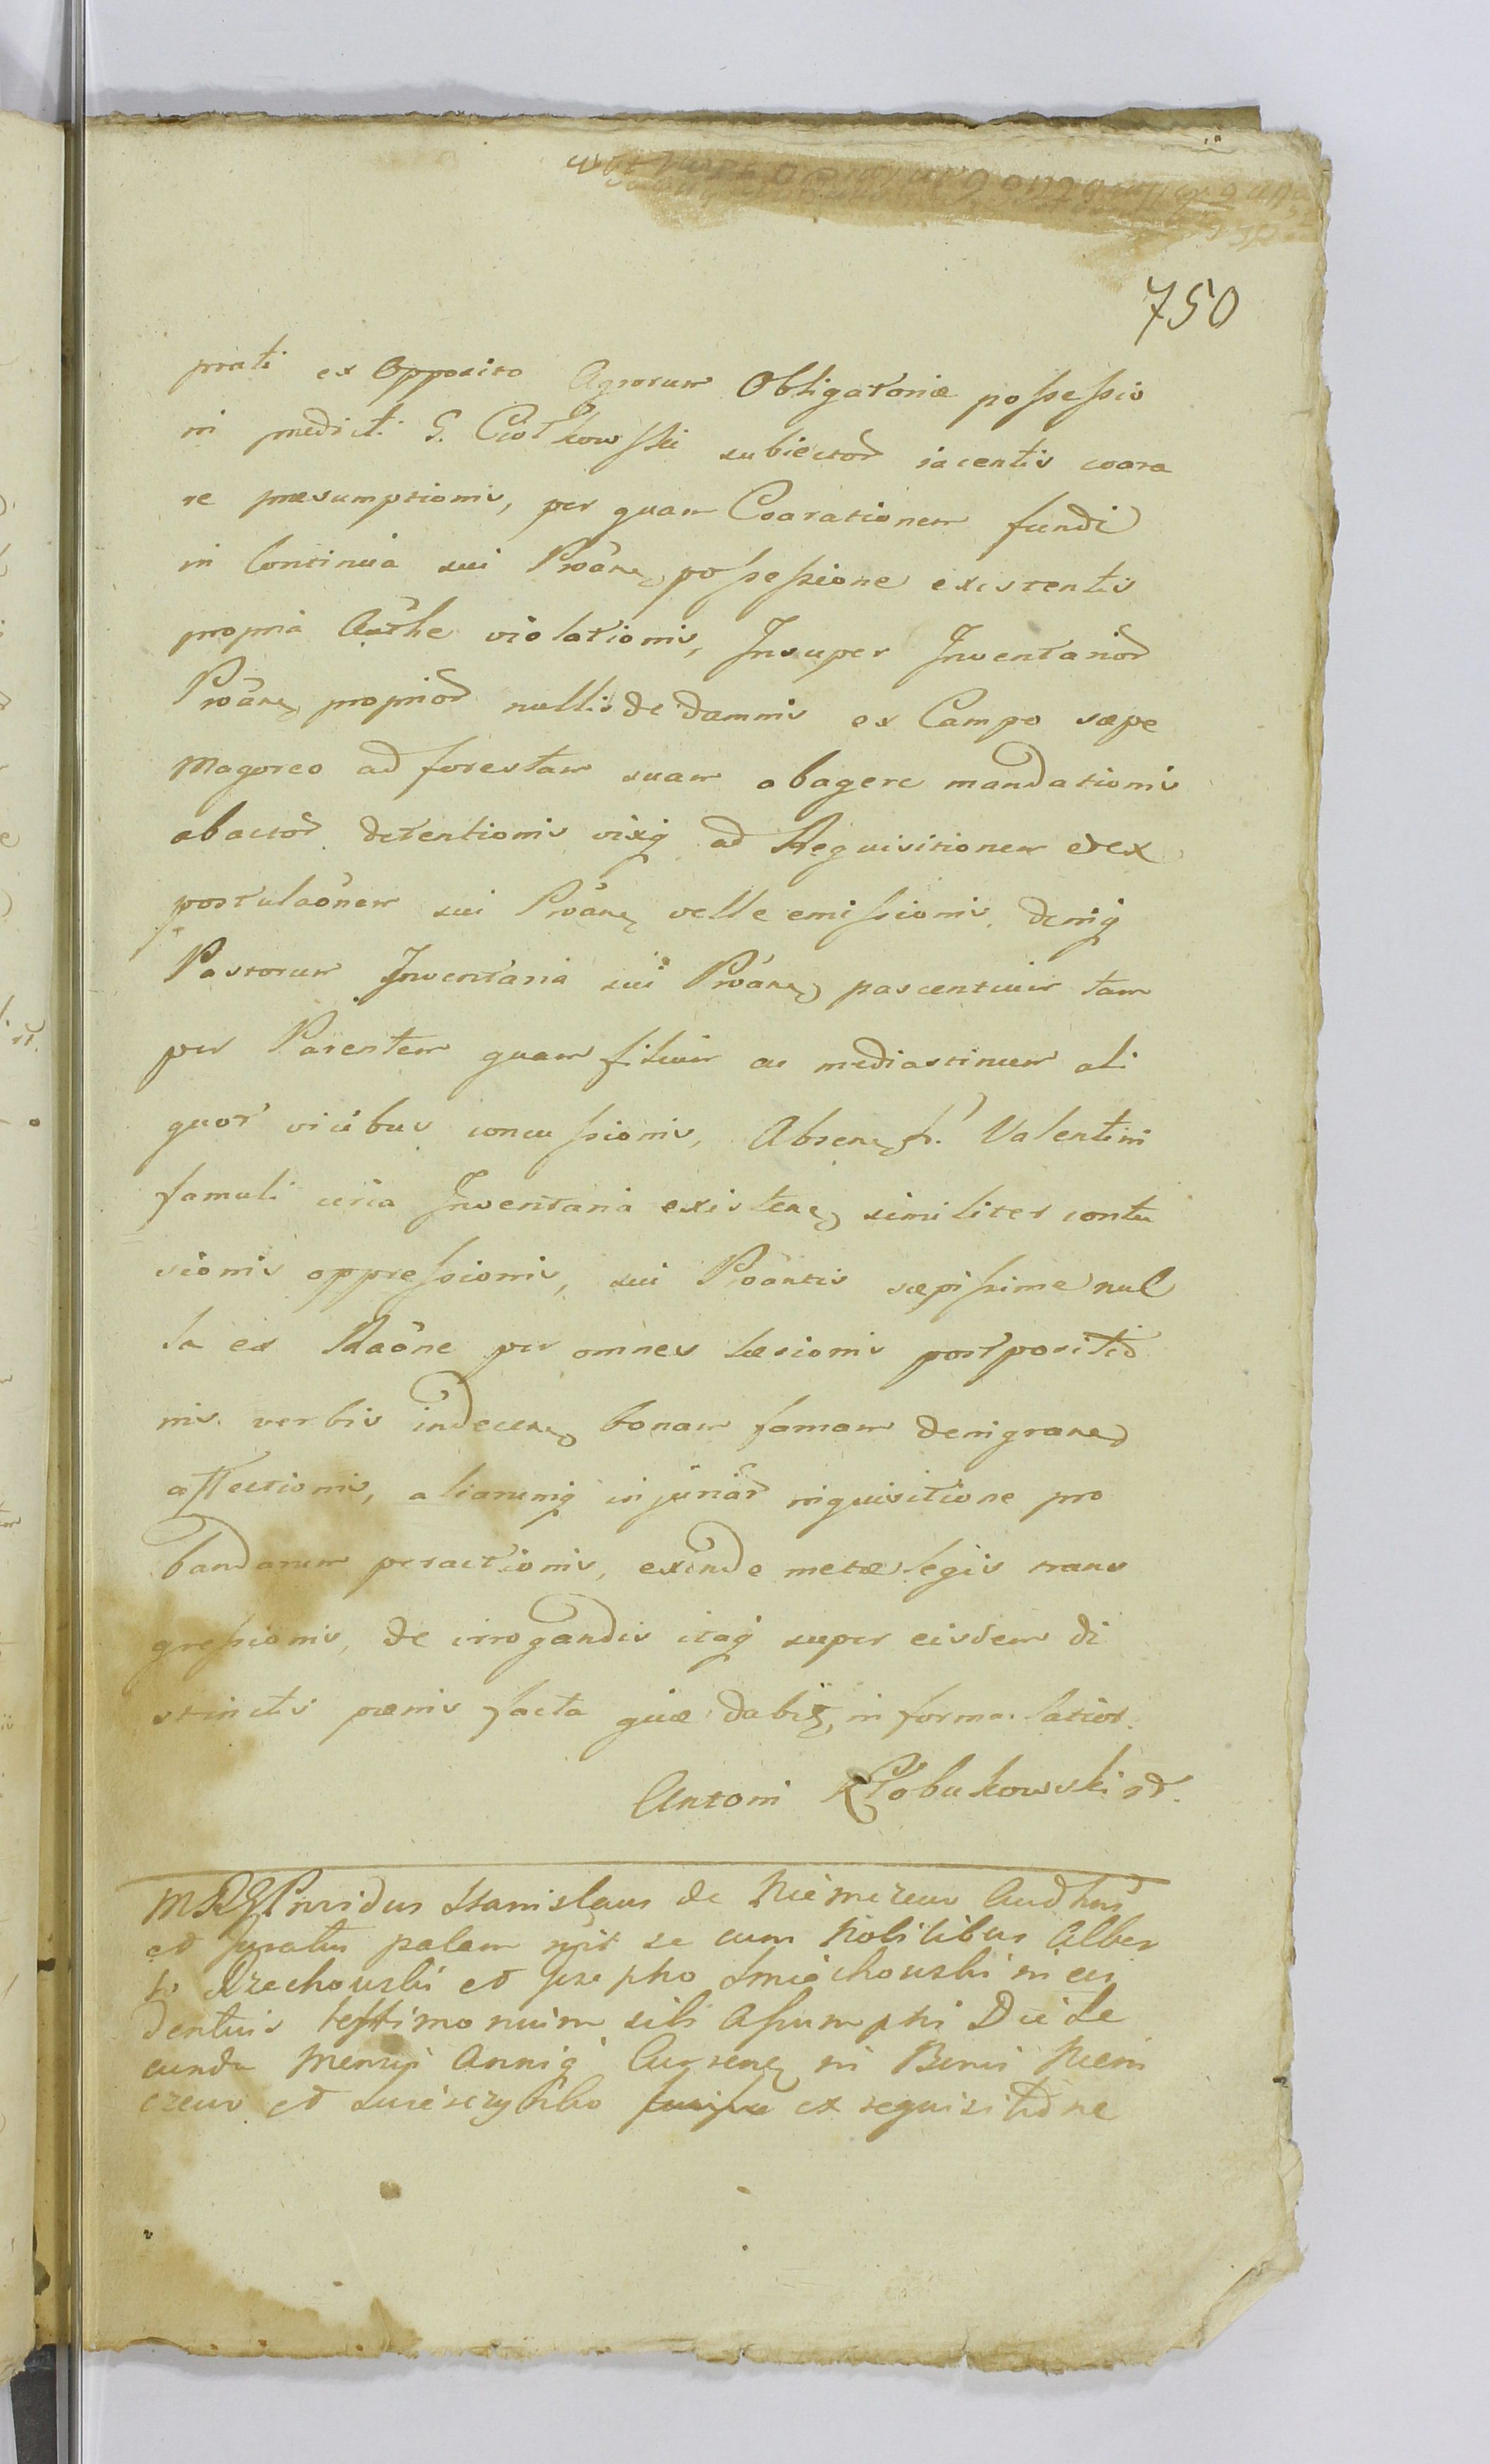 750
prati ex Opposito Agrorum Obligatoriæ possessio
ni prædicti G. Ciołkowski subiector iacentis coara
re præsumptionis, per quam Coarationem fundi
in Continua sui Proãn possessione existentis
propria Authe violationis, Insuper Inventarior
Proãn proprior nullis de damnis ex Campo sæpe
Magoreo ad forestam suam abagere mandationis
abactor detentionis vixq ad Requisitionem et ex
postulaõnem sui Proãn velle emissionis, deniq
Pastorum Inventaria sui Proãn pascentium tam
per Parentem quam filium ac mediastinum ali
quot vicibus concussionis, Absen Valentini
famuli circa Inventaria existen similiter contu
sionis oppressionis, sui Proãntis sæpissime nul
la ex Raõne per omnes læsionis postpositio
nis verbis indecen bonam famam denigran
affectionis, aliarumq injuriar inquisitione pro
bandarum peractionis, exinde metæ legis trans
gressionis, de irrogandis itaq super eisdem di
strictis pœnis facta quæ dabit, in forma latior.
Antoni Kłobukowski
Providus Stanislaus de Niemirow
et juratus palam se cum Nobilibus Alber
to Orzechowski et Josepho Smiechowski in evi
dentius testimonium sibi assumptis Die Se
cunda Mensis Anniq Curren in Bonis Niemi
erow et ex requisitione